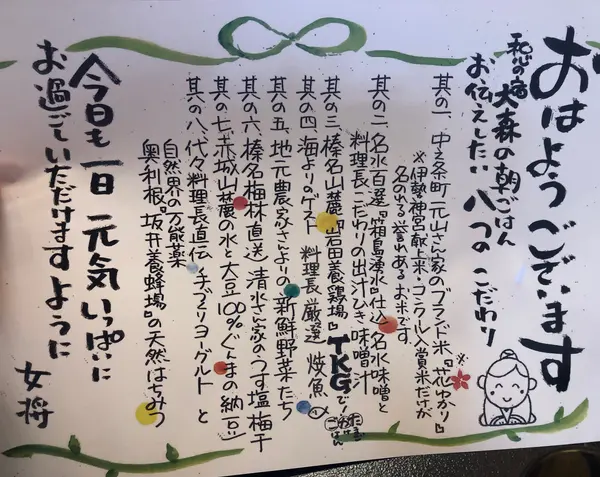 おはようございます
和心の宿 大森の朝ごはん
お伝えしたい 八つの こだわり
其の一、中之条町 元山さん家のブランド米『花ゆかり』
※
※伊勢神宮献上米・コンクール入賞米だが
名のれる誉れあるお米です
其の二、名水百選『箱島湧水』仕込 名水味噌と
料理長こだわりの出汁ひき味噌汁
其の三、榛名山麓『岩田養鶏場』TKGで!
たまご
かけ
ごはん
其の四、海よりのゲスト 料理長 厳選 焼魚
其の五、地元農家さんよりの新鮮野菜たち
其の六、榛名梅林直送 清水さん家のつす塩梅干
其の七、赤城山麓の水と大豆100%ぐんまの納豆
其の八、代々料理長直伝 手づくりヨーグルト と
自然界の万能薬
奥利根『坂井養蜂場』の天然はちみつ
今日も一日 元気いっぱいに
お過ごしいただけますように
女将